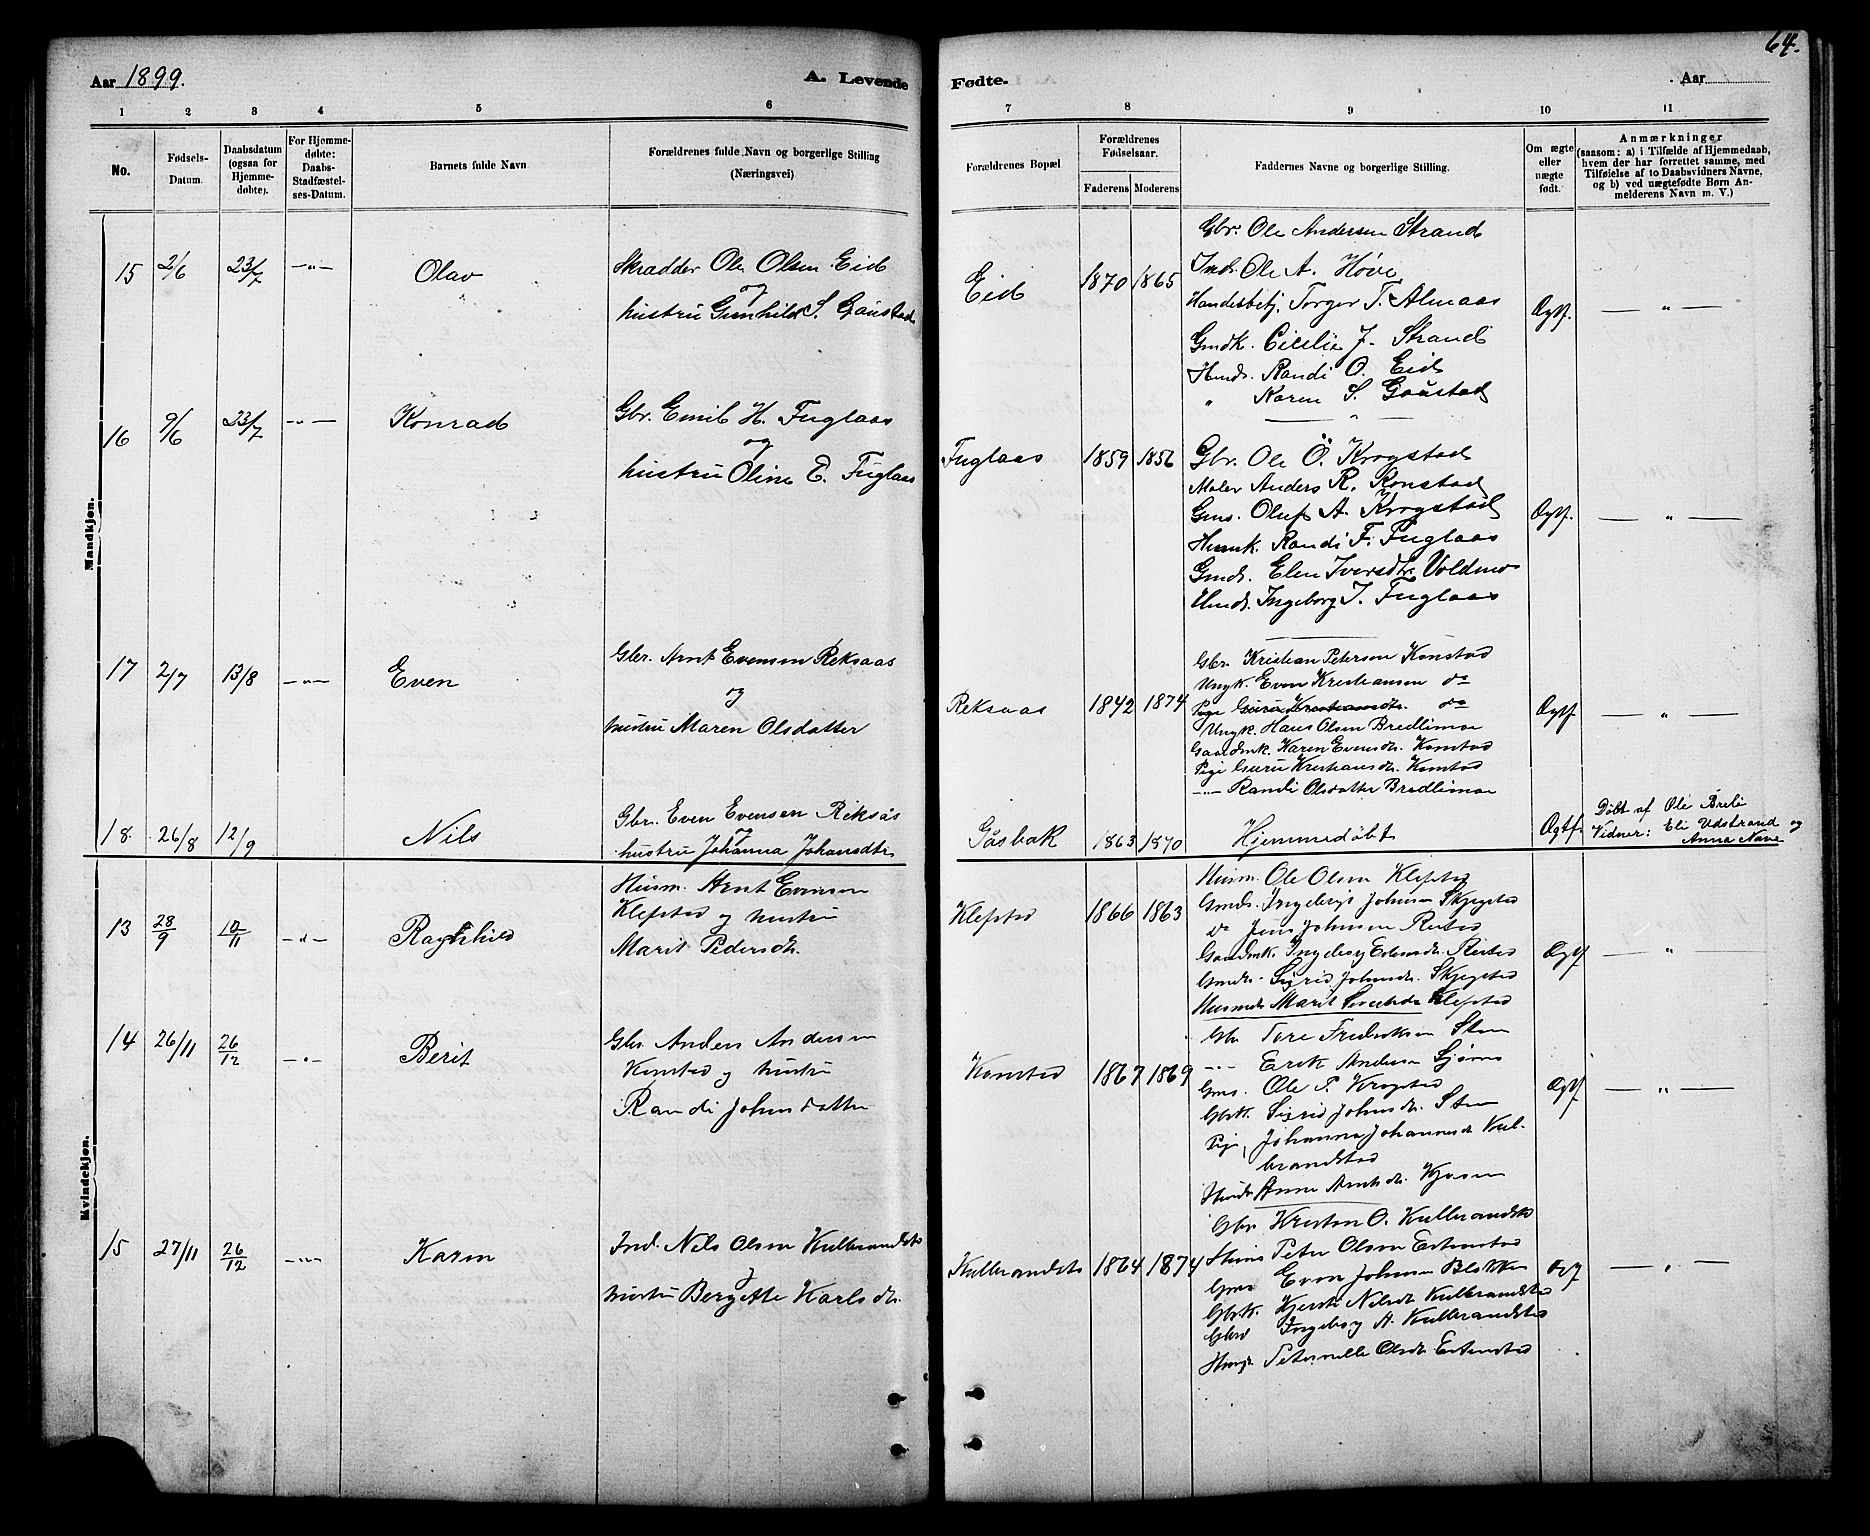 64.
Aar 1899.
A. Levende
Fødte.
Aar
1 2 3 4 5 6 7 8 9 10 11
No.
Fødsels-
Datum.
Daabsdatum
(ogsaa for
Hjemme-
døbte).
For Hjemme-
døbte:
Daabs-
Stadfæstel-
ses-Datum.
Barnets fulde Navn
Forældrenes fulde Navn og borgerlige Stilling
(Næringsvei).
Forældrenes Bopæl
Forældrenes
Fødselsaar.
Faderens Moderens
Faddernes Navne og borgerlige Stilling.
Om ægte
eller
uægte
født.
Anmærkninger
(saasom: a) i Tilfælde af Hjemmedaab,
hvem der har forrettet samme, med
Tilføielse af to Daabsvidners Navne,
og b) ved uægtefødte Børn An-
melderens Navn m. V.)
Mandkjøn.
15 2/6 23/7 —„— Olav
Skrædder Ole Olsen Eid
og
hustru Gunhild S. Gaustad
Eid 1870 1865
Gbr. Ole Andersen Strand
Inds. Ole A. Høve
Handelsbetj. Torger T. Almaas
Gmdk. Cicilie J. Strand
Hmds. Randi O. Eid
„ Karen S. Gaustad
Ægtf. — „ —
16 9/6 23/7 —„— Konrad
Gbr. Emil H. Fuglaas
og
hustru Oline E. Fuglaas
Fuglaas 1859 1856
Gbr. Ole Ö. Krogstad
Maler Anders R. Konstad
Gms. Oluf A. Krogstad
Husmk. Randi F. Fuglaas
Gmds. Elen Iversdtr Voldmo
Hmds. Ingeborg J. Fuglaas
Ægtf. — „ —
17 2/7 13/8 —„— Even
Gbr. Arnt Evensen Reksaas
og
hustru Maren Olsdatter
Reksaas 1842 1874
Gbr. Kristian Petersen Konstad
Ungk. Even Kristiansen do
Pige Guru Kristiansdtr. do
Ungk. Hans Olsen Bredlimo
Gaardmk. Karen Evensdtr. Konstad
Pige Guru Kristiansdtr. Konstad
—„— Randi Olsdatter Bredlimo
Ægtf — „ —
18 26/8 12/9 Nils
Gbr. Even Evensen Reksås
og
hustru Johanna Johansdtr
Gåsbak 1863 1870
Hjemmedøbt
Ægtf.
Døbt af Ole Breli
Vidner: Eli Udstrand og
Anna Nave
Kvindekjøn.
13 28/9 10/11 —„— Ragnhild
Husm. Arnt Evensen
Klefstad og hustru
Marit Pedersdtr.
Klefstad 1866 1863
Husm. Ole Olsen Klefstad
Gmds. Ingebrigt Johnsen Skjegstad
do Jens Johnsen Restad
Gaardmk. Ingeborg Estensdtr. Restad
Gmdtr. Sigrid Johnsdtr. Skjegstad
Husmds Marit Sivertsdtr Klefstad
Ægtf — „ —
14 26/11 26/12 —„— Berit
Gbr Anders Andersen
Konstad og hustru
Randi Johnsdatter
Konstad 1867 1869
Gbr Tore Fredriksen Steen
—„— Erik Andersen Sjømo
Gms. Ole P. Krogstad
Gbrk. Sigrid Johnsdtr. Steen
Pige, Johanna Johannesdtr Kul-
brandstad
Hmds Anne Arntsdtr. Kjosen
Ægtf — „ —
15 27/11 26/12 —„— Karen
Ind. Nils Olsen Kulbrandsta
og
hustru Bergitte Karlsdtr.
Kulbrandsta 1864 1874
Gbr Kristen O. Kulbrandsta
Peter Olsen Estenstad
Gms Even Johnsen Blekken
Gbrk. Kjersti Nilsdtr Kulbrandsta
Gbrd Ingeborg A. Kulbrandsta
Petternelle Olsdtr Estenstad
Ægtf — „ —